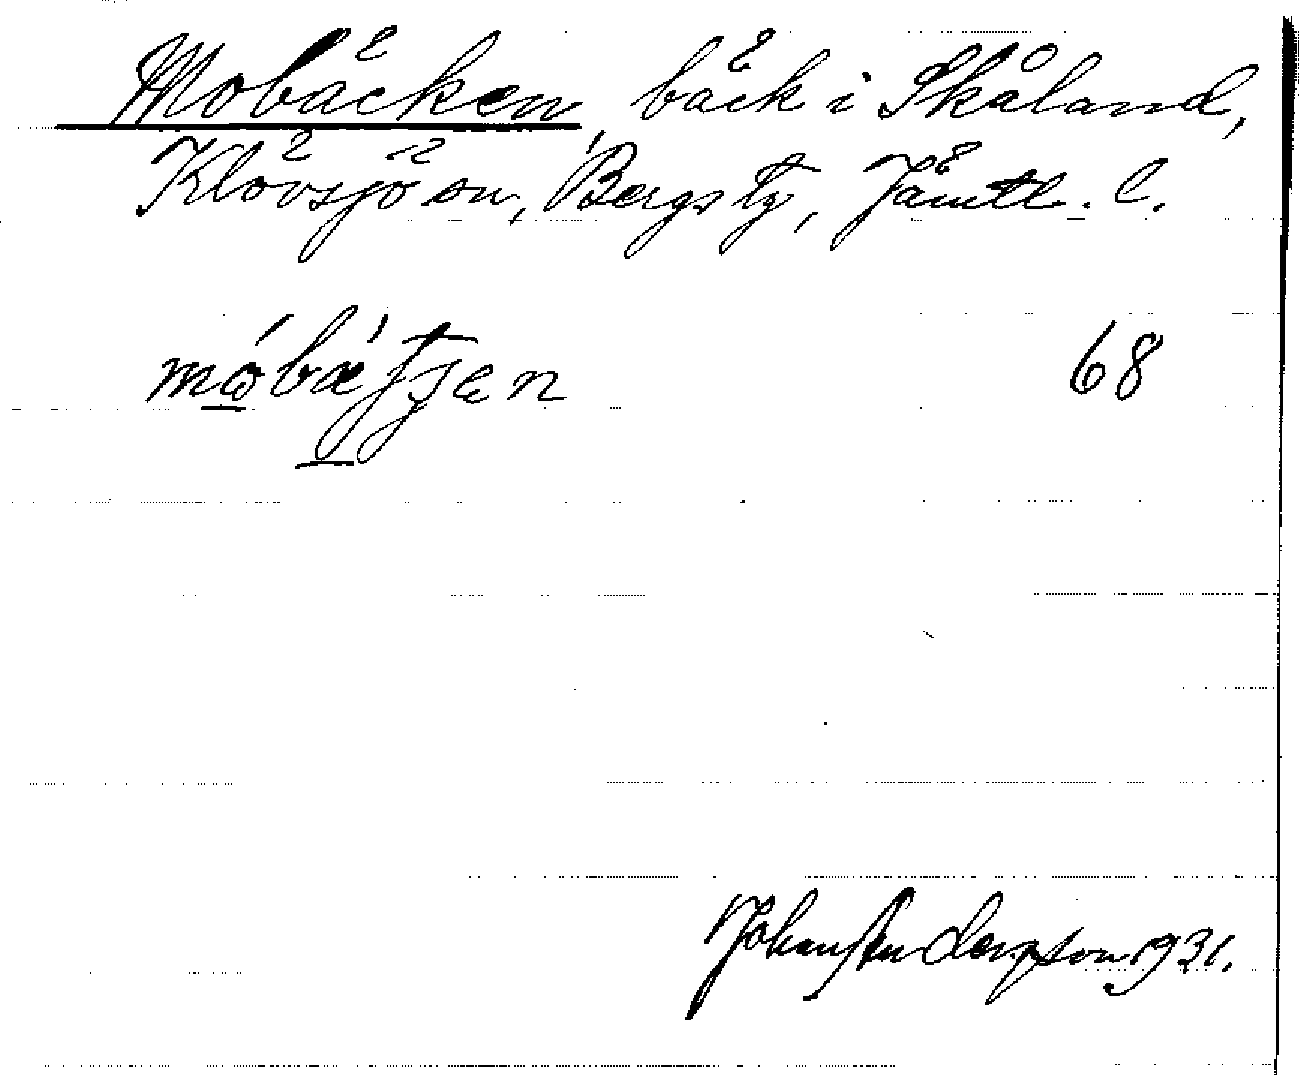 Mobäcken, bäck i Skåland,
Klövsjö sn, Bergs tg, Jämtl. l.
68
Johan Andersson 1931.